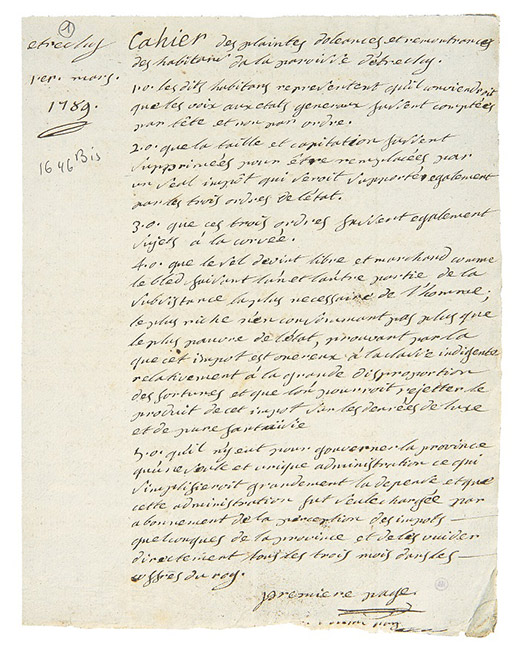 1
etrechy
1er. mars.
1789.
1646 Bis
Cahier des plaintes doleances et remontrances
des habitans de la paroisse d'étrechy.
1.o. les dits habitans representent qu'il conviendroit
que les voix aux etats generaux fussent comptées
par tête et non par ordre.
2.o. que la taille et capitation fussent
supprimées pour être remplacées par
un seul impôt qui seroit supporté egalement
par les trois ordres de l'état.
3.o. que ces trois ordres fussent egalement
sujets à la corvée.
4.o. que le sel devint libre et marchand comme
le bled faisant l'un et l'autre partie de la
subsistance la plus necessaire de l'homme;
le plus riche n'en consommant pas plus que
le plus pauvre de l'état, prouvant par la
que cet impot est onereux à la classe indigente
relativement à la grande disproportion
des fortunes et que l'on pourroit rejetter le
produit de cet impot sur les denrées de luxe
et de pure fantaisie
5.o. qu'il n'y eut pour gouverner la province
qu'une seule et unique administration ce qui
simplifieroit grandement la depense et que
cette administration fut seule chargée par
abonnement de la perception des impots
quelconques de la province et de les vuider
directement tous les trois mois dans les
coffres du roy.
premiere page